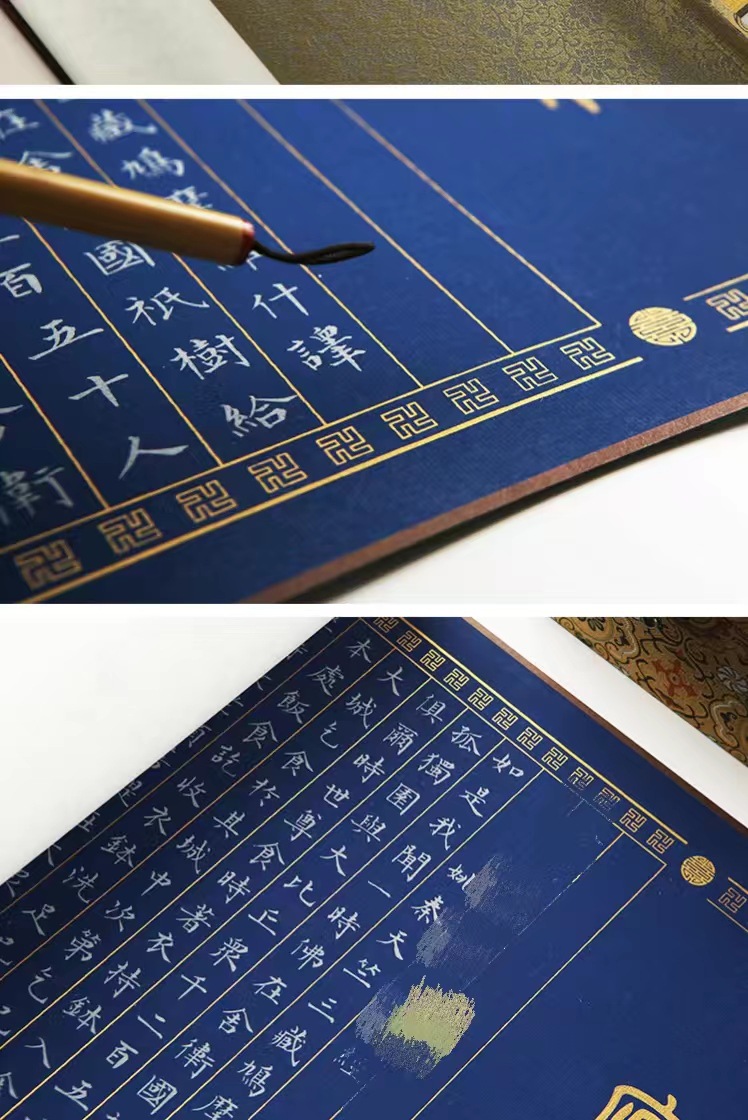 藏鳩摩什譯
舍國祇樹給
百五十人
衛
秦天竺三藏鳩摩
如是我聞一時佛在舍衛國
孤獨園與大比丘眾千二百五
俱爾時世尊食時著衣持鉢入
大城乞食於其城中次第乞
本處飯食訖收衣鉢洗足